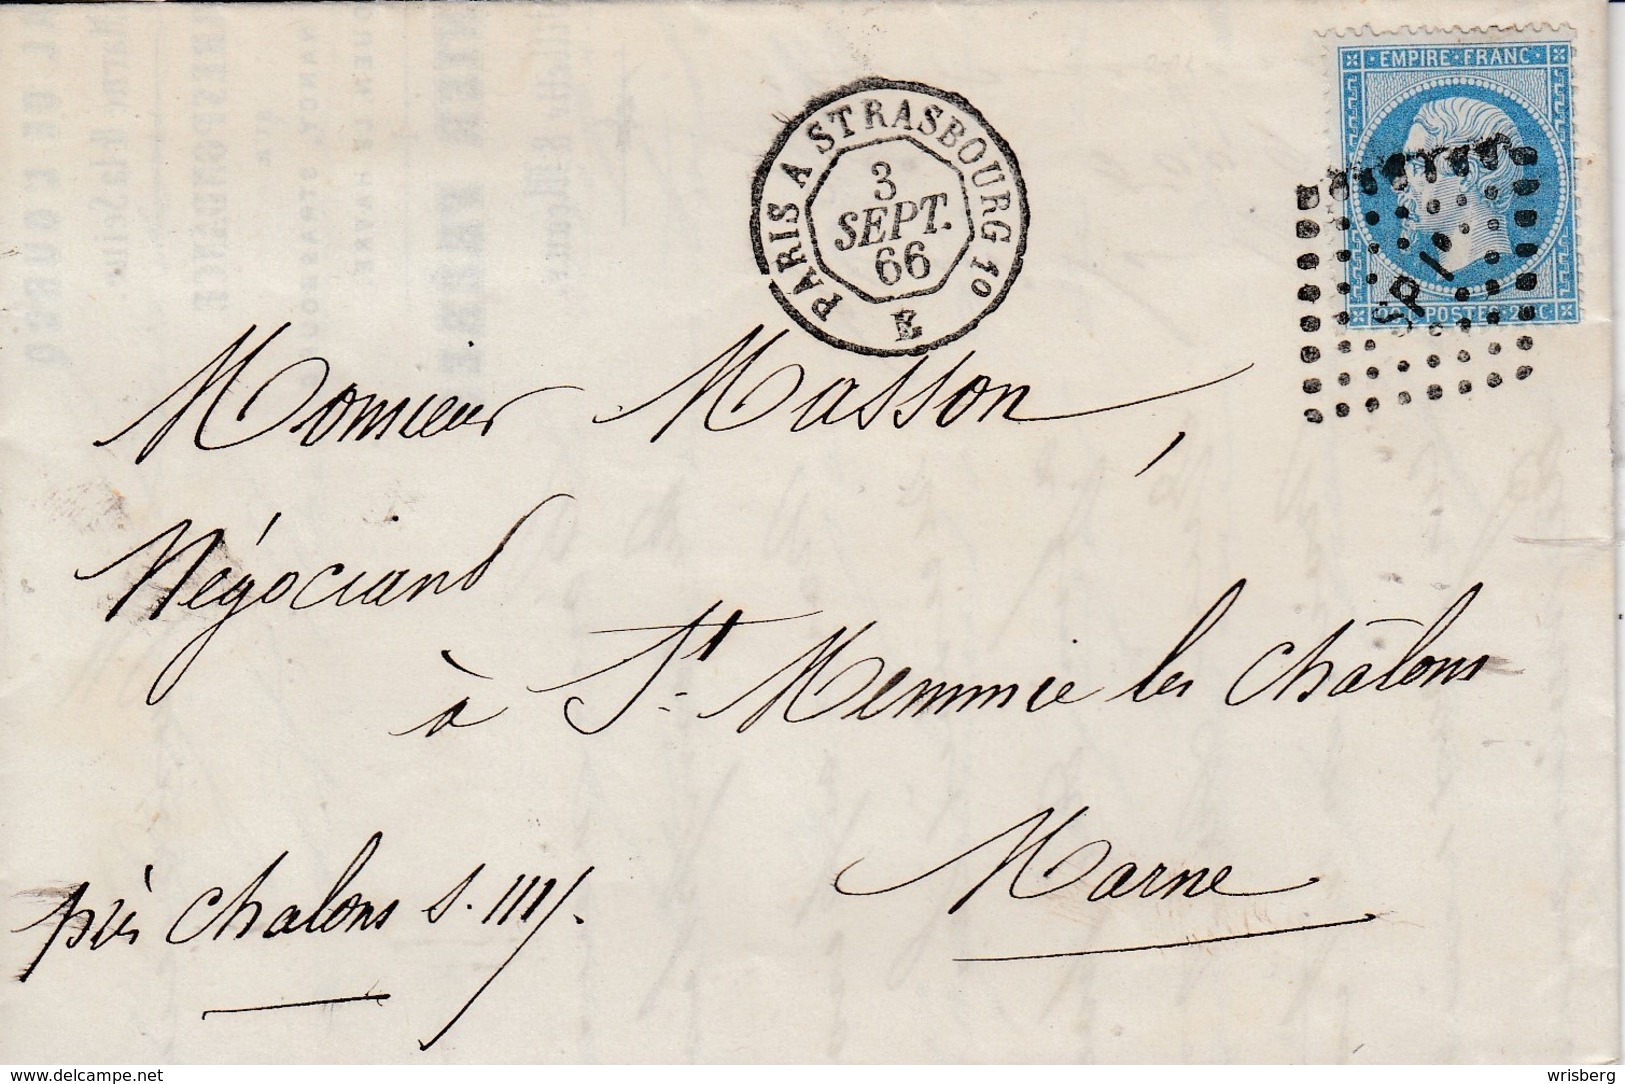 EMPIRE FRANC
20 C POSTES 20 C
PARIS A STRASBOURG 1o
3
SEPT.
66
E
Monsieur Masson,
Négociant
à St. Memmie les Châlons
Marne
près Chalons s. M.
www.delcampe.net
wrisberg